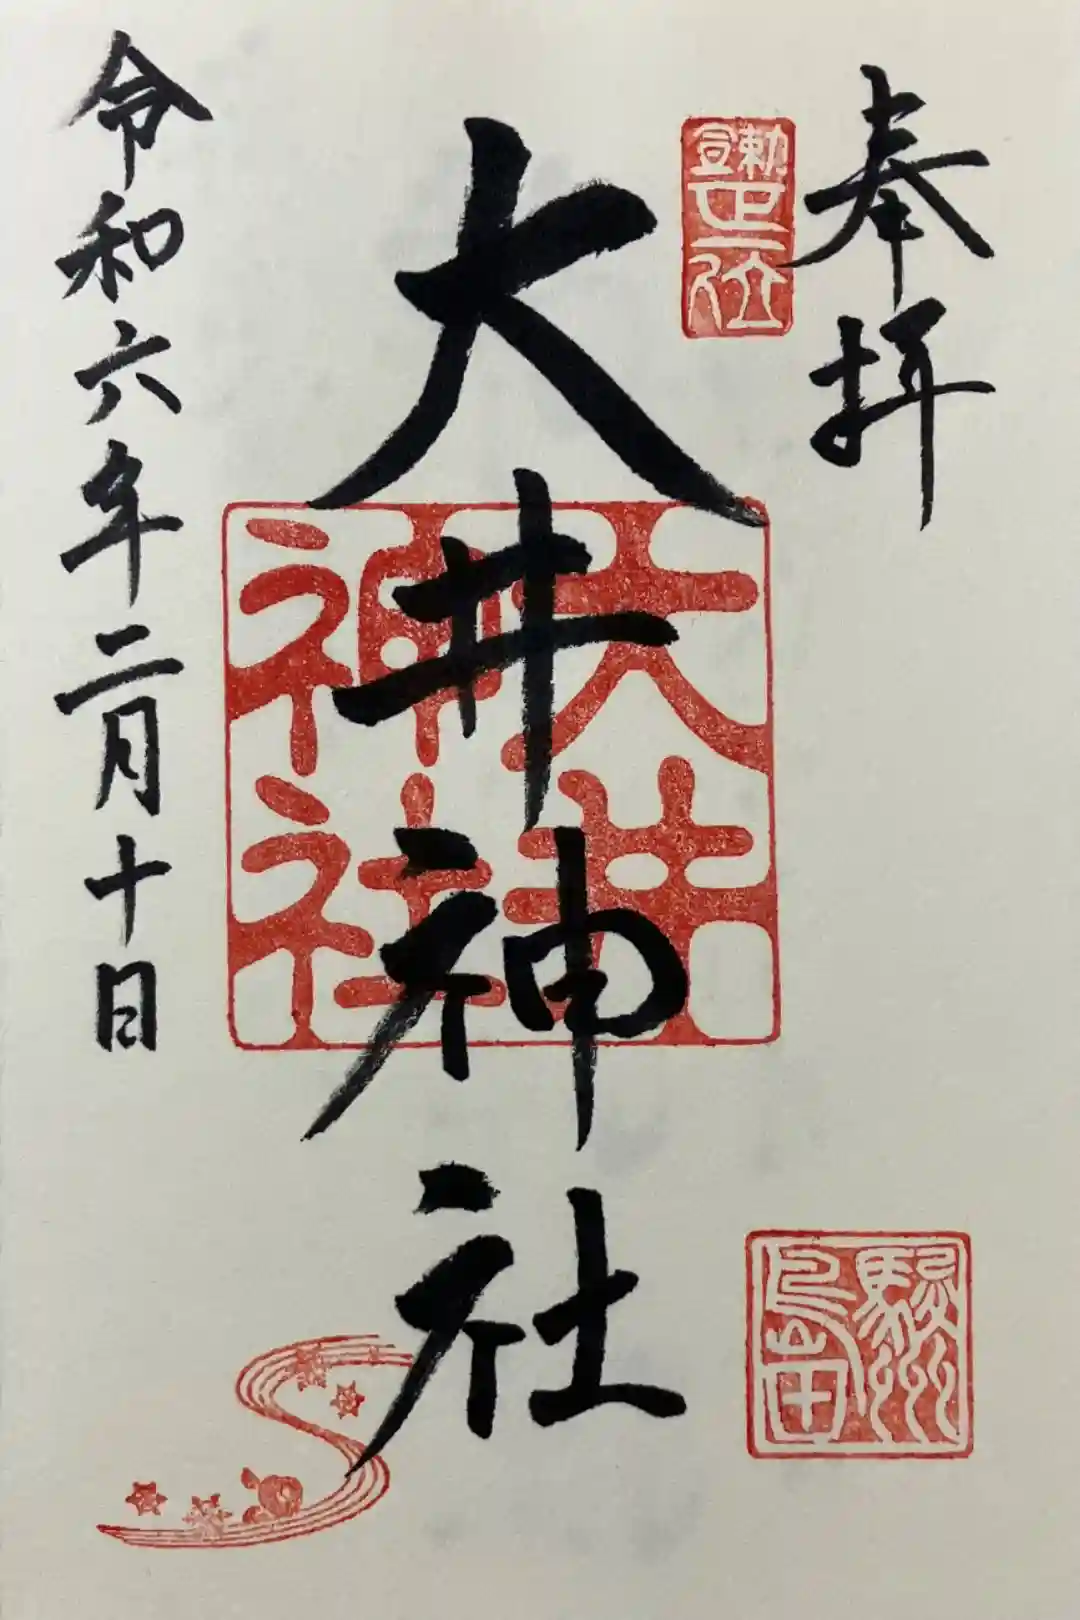 奉拝
勅宣
正一位
大井神社
大井
神社
駿州
島田
令和六年二月十日